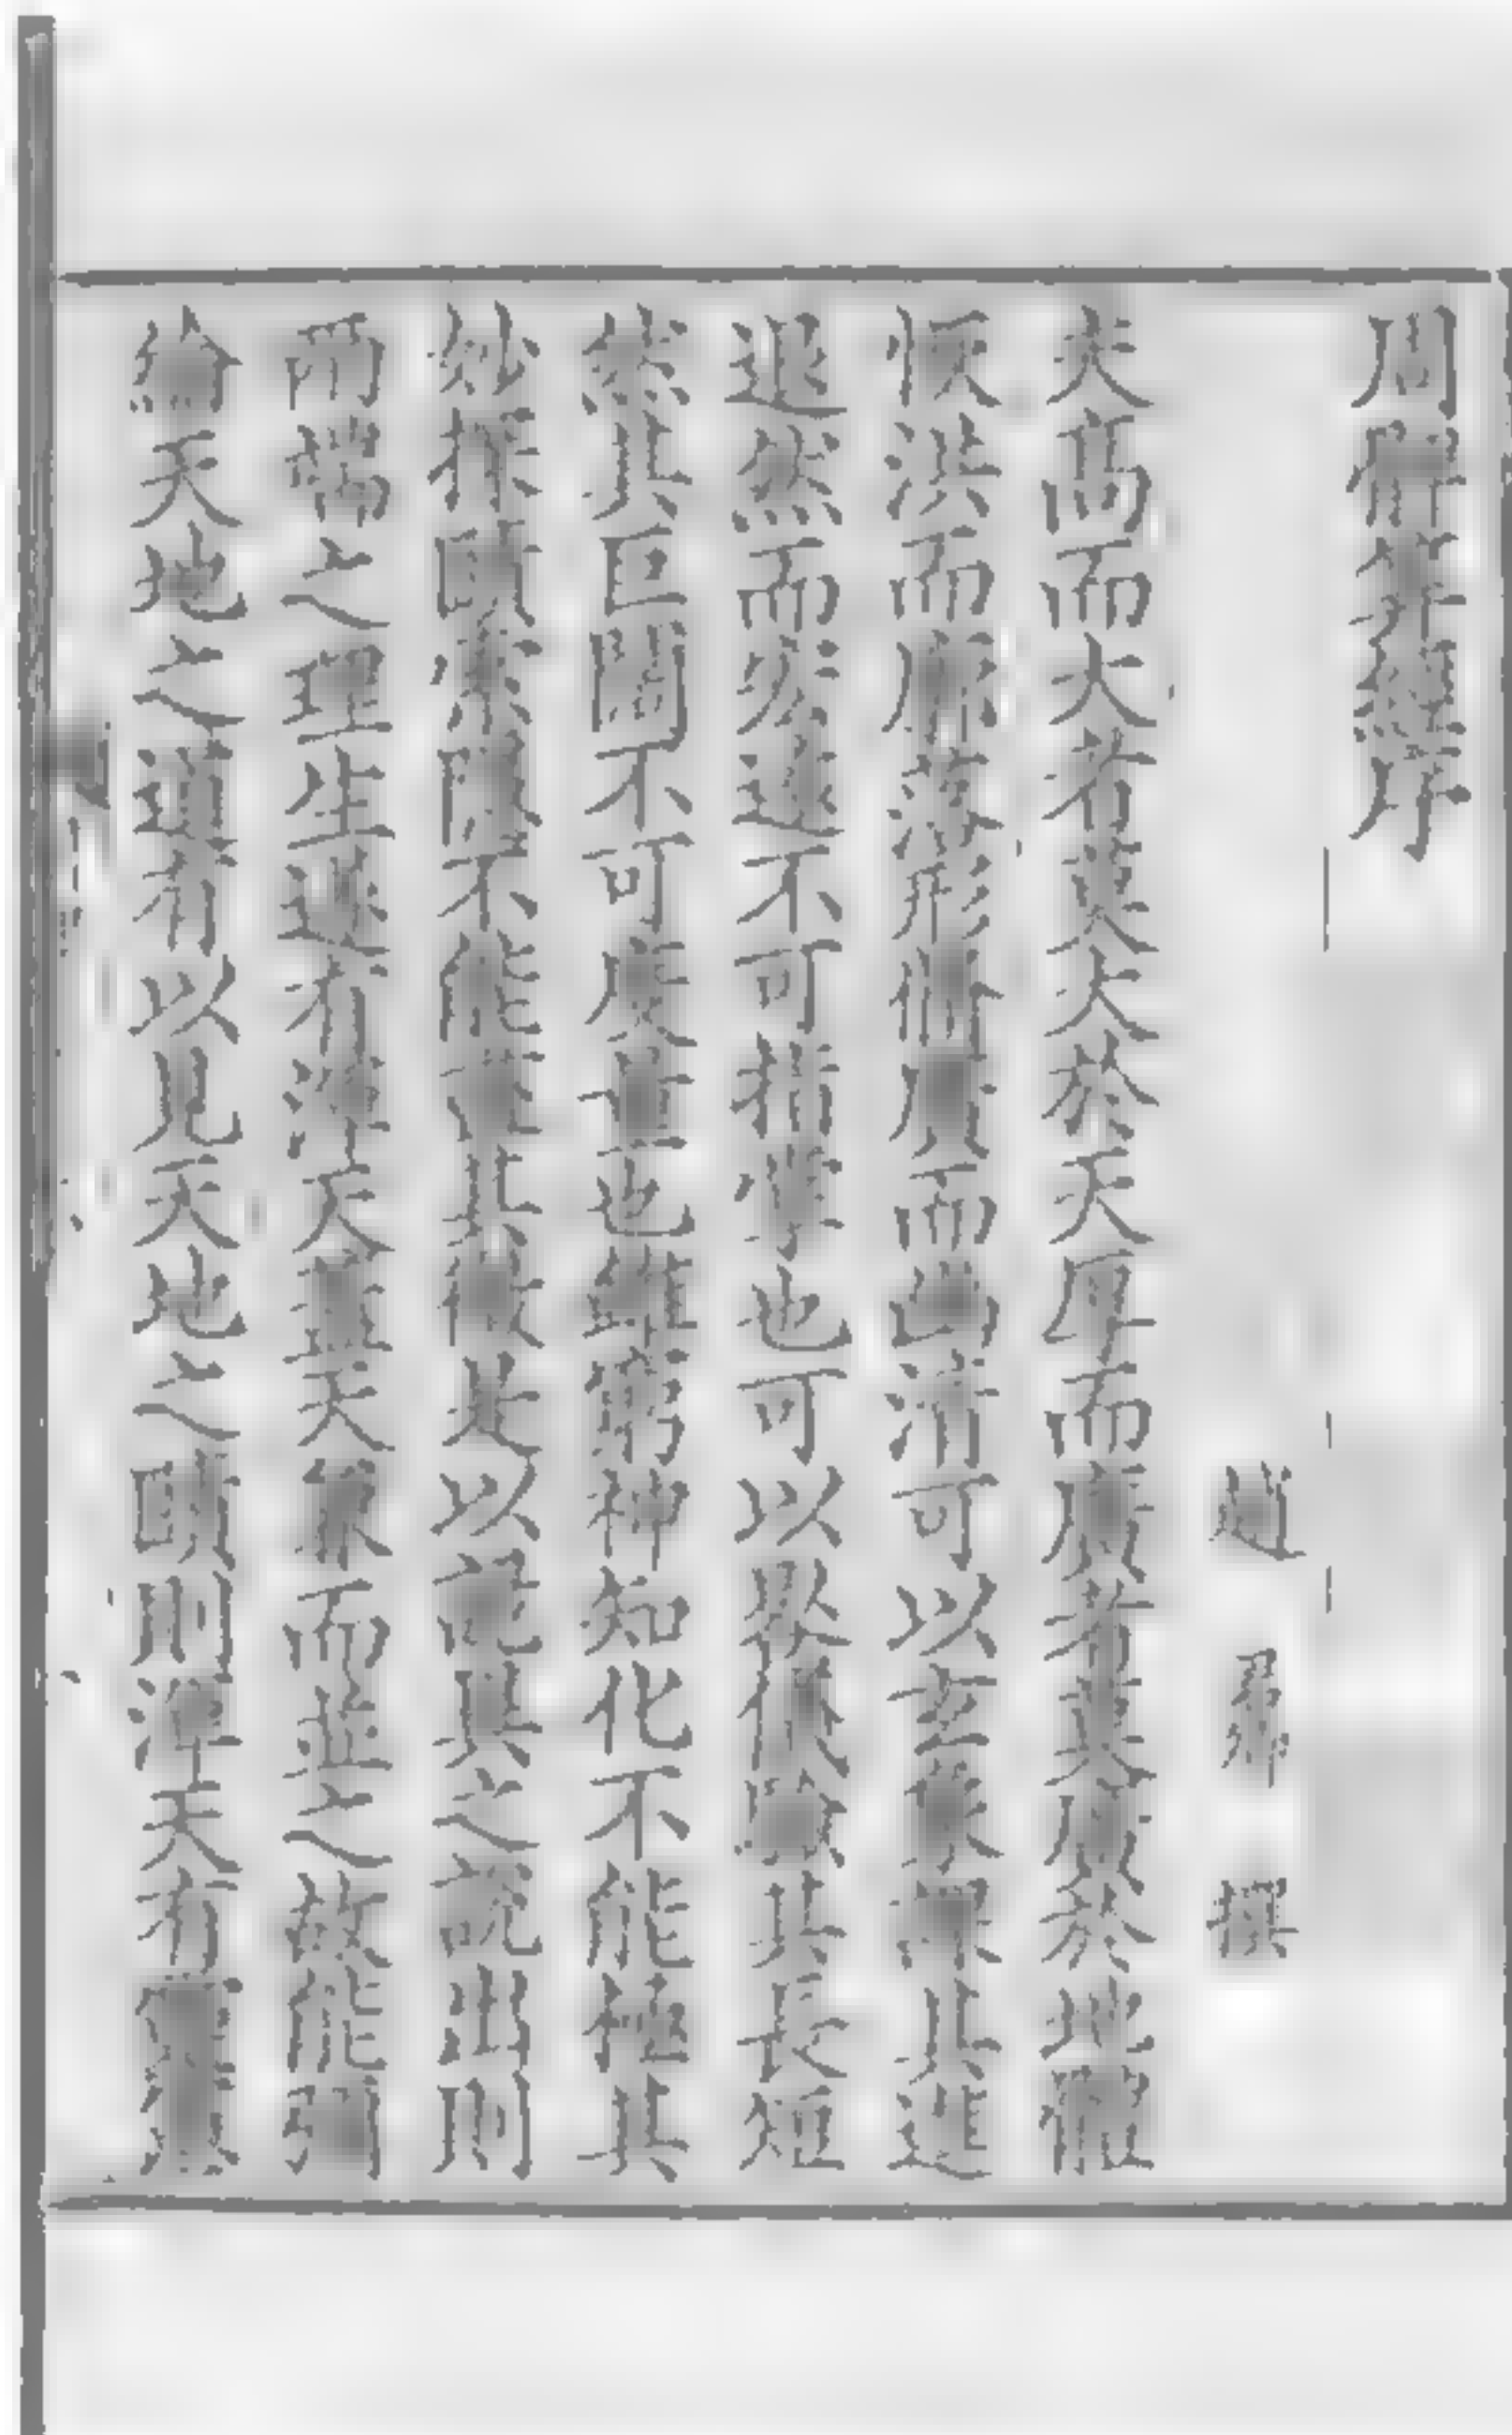 周髀算經序
趙 撰
夫高而大者莫大於天厚而廣者莫廣於地體
恢洪而廓落形脩廣而幽清可以玄象課其進
退然而宏遠不可指掌也可以晷儀驗其長短
然其巨闊不可度量也雖窮神知化不能極其
妙探賾索隱不能盡其微是以詭異之說出則
兩端之理生遂有渾天蓋天兼而並之故能彌
綸天地之道有以見天地之賾則渾天有靈憲